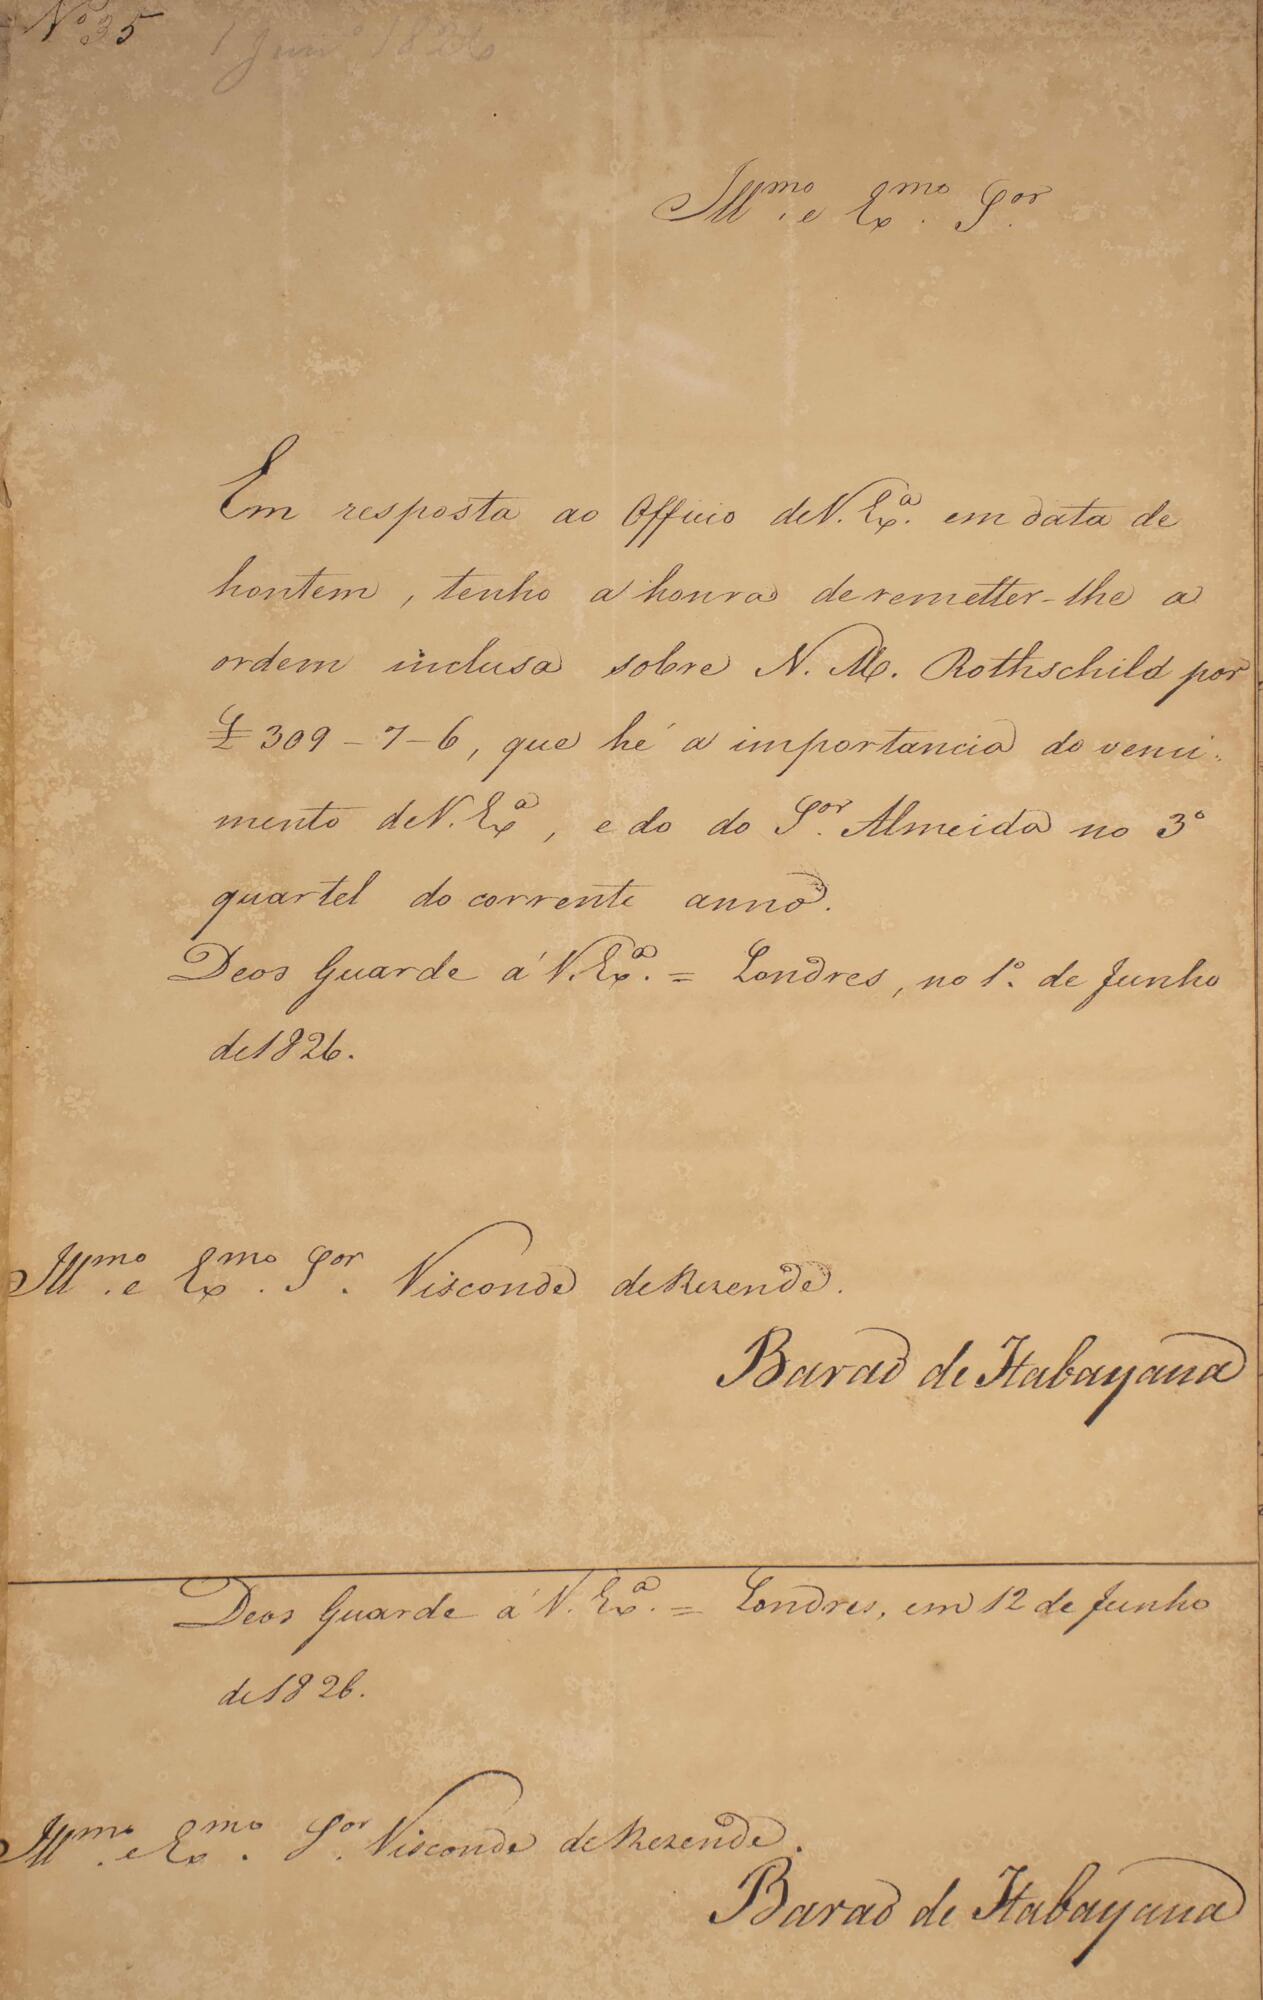 Nº 35 1 Junº 1826
Illmo. e Exmo. Sor.
Em resposta ao Officio de V. Exª. em data de
hontem, tenho a honra de remetter-lhe a
ordem inclusa sobre N. M. Rothschild por
£ 309-7-6, que hé a importancia do venci-
mento de V. Exª, e do do Sor. Almeida no 3º
quartel do corrente anno.
Deos Guarde á V. Exª. = Londres, no 1º. de Junho
de 1826.
Illmo. e Exmo. Sor. Visconde de Rezende.
Baraõ de Itabayana
Deos Guarde á V. Exª. = Londres, em 12 de Junho
de 1826.
Illmo. e Exmo. Sor. Visconde de Rezende.
Baraõ de Itabayana